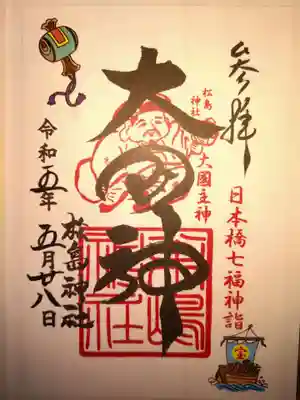 奉拝
日本橋七福神詣
松島
神社
大國主神
大国神
令和五年
五月廿八日
松島神社
宝